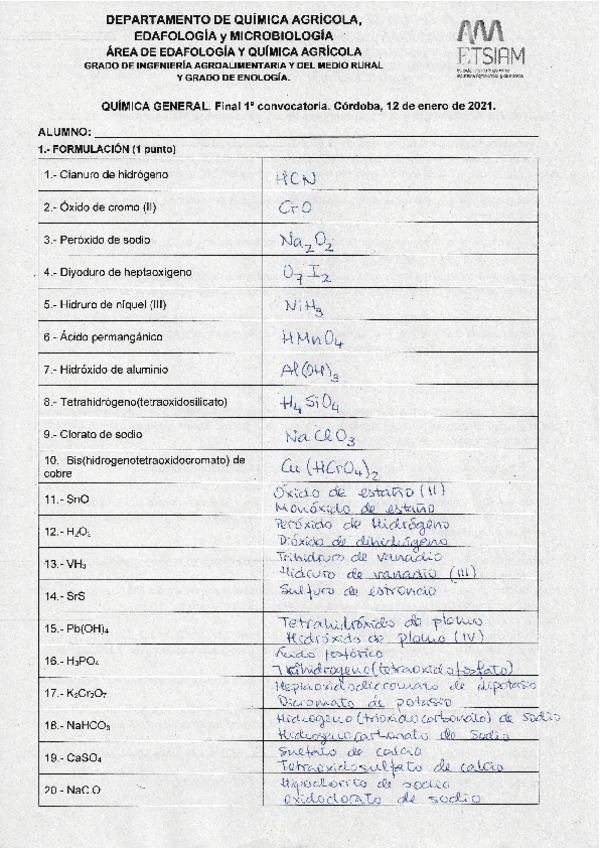 DEPARTAMENTO DE QUÍMICA AGRÍCOLA,
EDAFOLOGÍA y MICROBIOLOGÍA
ÁREA DE EDAFOLOGÍA Y QUÍMICA AGRÍCOLA
GRADO DE INGENIERÍA AGROALIMENTARIA Y DEL MEDIO RURAL
Y GRADO DE ENOLOGÍA.
ETSIAM
QUÍMICA GENERAL. Final 1ª convocatoria. Córdoba, 12 de enero de 2021.
ALUMNO:
1.- FORMULACIÓN (1 punto)
1.- Cianuro de hidrógeno HCN
2.- Óxido de cromo (II) CrO
3.- Peróxido de sodio Na₂O₂
4.- Diyoduro de heptaoxígeno O₇I₂
5.- Hidruro de níquel (III) NiH₃
6 - Ácido permangánico HMnO₄
7.- Hidróxido de aluminio Al(OH)₃
8.- Tetrahidrógeno(tetraoxidosilicato) H₄SiO₄
9.- Clorato de sodio NaClO₃
10. Bis(hidrogenotetraoxidocromato) de
cobre Cu(HCrO₄)₂
11.- SnO Óxido de estaño (II)
Monóxido de estaño
12.- H₂O₂ Peróxido de Hidrógeno
Dióxido de dihidrógeno
13.- VH₃ Trihidruro de vanadio
Hidruro de vanadio (III)
14.- SrS Sulfuro de estroncio
15.- Pb(OH)₄ Tetrahidróxido de plomo
Hidróxido de plomo (IV)
16.- H₃PO₄ Ácido fosfórico
Trihidrogeno(tetraoxidofosfato)
17.- K₂Cr₂O₇ Heptaoxidodicromato de dipotasio
Dicromato de potasio
18.- NaHCO₃ Hidrogeno(trioxidocarbonato) de sodio
Hidrogenocarbonato de Sodio
19.- CaSO₄ Sulfato de calcio
Tetraoxidosulfato de calcio
20 - NaC O Hipoclorito de sodio
Oxidoclorato de sodio